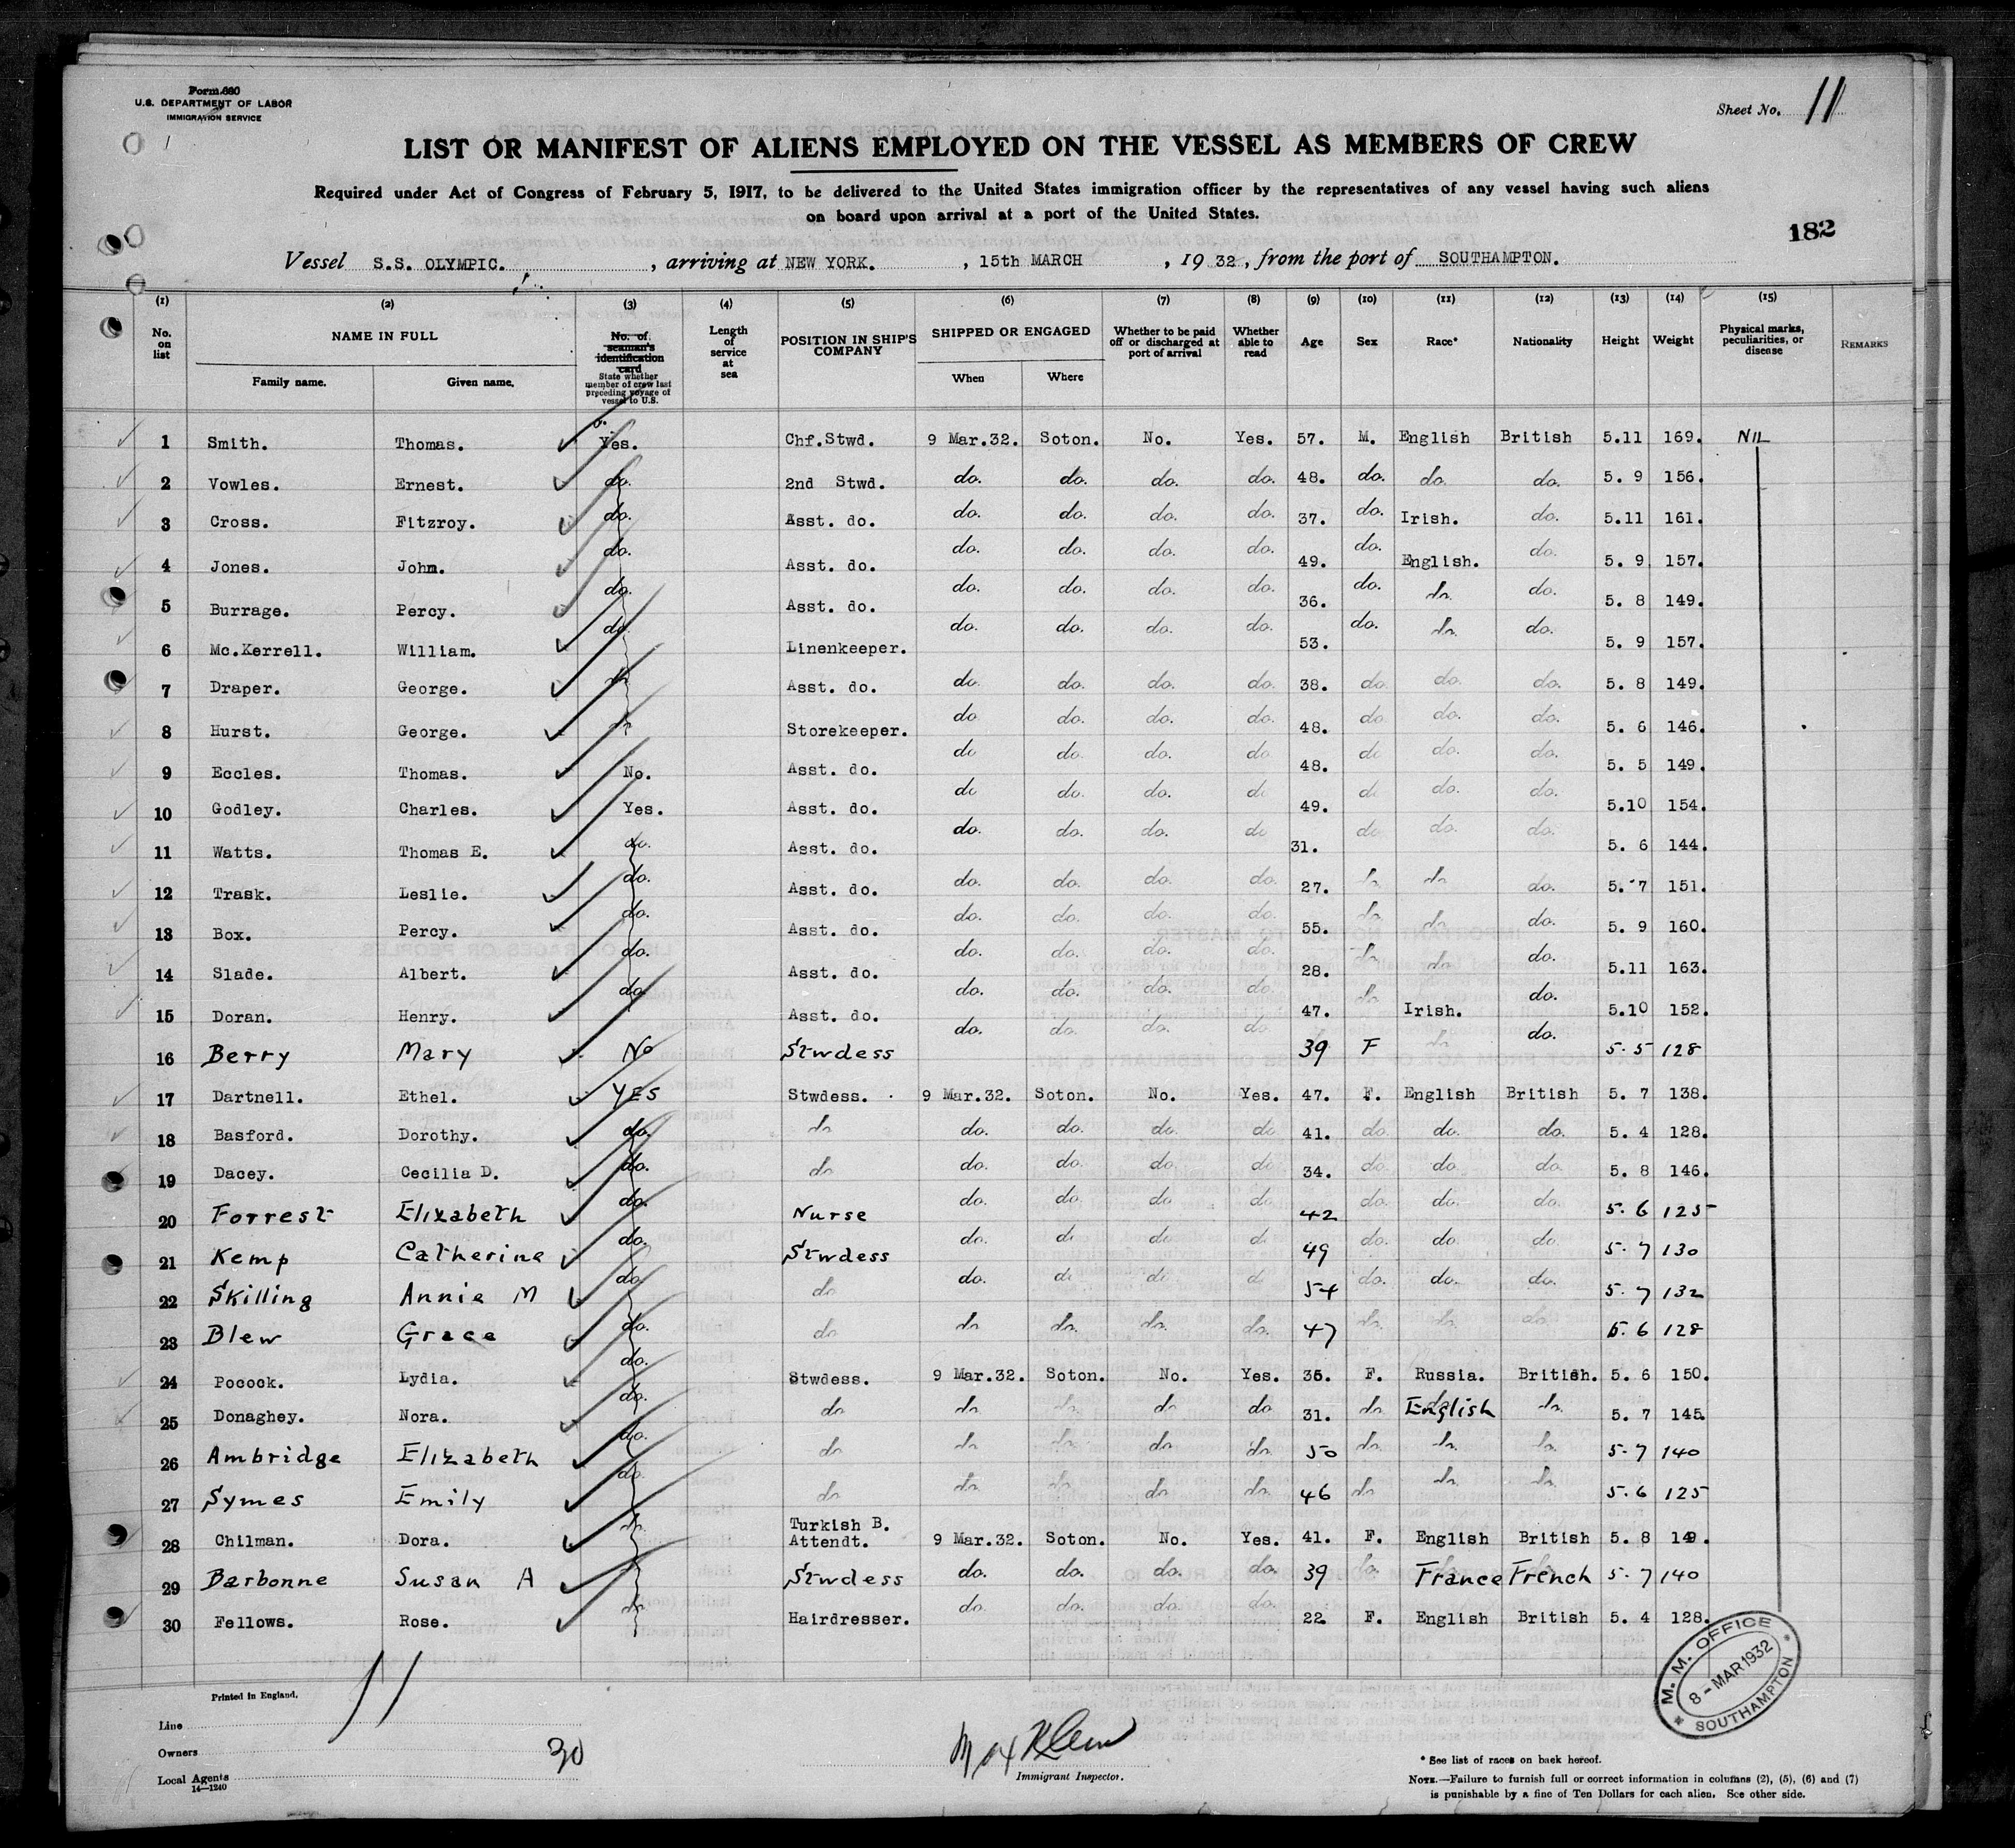 Form 680
U.S. DEPARTMENT OF LABOR
IMMIGRATION SERVICE
Sheet No. 11
LIST OR MANIFEST OF ALIENS EMPLOYED ON THE VESSEL AS MEMBERS OF CREW
Required under Act of Congress of February 5, 1917, to be delivered to the United States immigration officer by the representatives of any vessel having such aliens
on board upon arrival at a port of the United States.
182
Vessel S.S. OLYMPIC. , arriving at NEW YORK. , 15th MARCH , 19 32, from the port of SOUTHAMPTON.
(1) (2) (3) (4) (5) (6) (7) (8) (9) (10) (11) (12) (13) (14) (15)
No. on list NAME IN FULL Family name. Given name. No. of seaman's identification card State whether member of crew last preceding voyage of vessel to U.S. Length of service at sea POSITION IN SHIP'S COMPANY SHIPPED OR ENGAGED When Where Whether to be paid off or discharged at port of arrival Whether able to read Age Sex Race* Nationality Height Weight Physical marks, peculiarities, or disease REMARKS
1 Smith. Thomas. Yes. Chf.Stwd. 9 Mar.32. Soton. No. Yes. 57. M. English British 5.11 169. NIL
2 Vowles. Ernest. do. 2nd Stwd. do. do. do. do. 48. do. do. do. 5. 9 156.
3 Cross. Fitzroy. do. Asst. do. do. do. do. do. 37. do. Irish. do. 5.11 161.
4 Jones. John. do. Asst. do. do. do. do. do. 49. do. English. do. 5. 9 157.
5 Burrage. Percy. do. Asst. do. do. do. do. do. 36. do. do. do. 5. 8 149.
6 Mc.Kerrell. William. do. Linenkeeper. do. do. do. do. 53. do. do. do. 5. 9 157.
7 Draper. George. do Asst. do. do. do. do. do. 38. do do. do. 5. 8 149.
8 Hurst. George. do Storekeeper. do do. do. do. 48. do do. do. 5. 6 146.
9 Eccles. Thomas. No. Asst. do. do do. do. do 48. do do. do. 5. 5 149.
10 Godley. Charles. Yes. Asst. do. do do. do. do 49. do do. do. 5.10 154.
11 Watts. Thomas E. do. Asst. do. do. do. do. do 31. do do. do. 5. 6 144.
12 Trask. Leslie. do. Asst. do. do. do. do. do. 27. do do do. 5. 7 151.
13 Box. Percy. do. Asst. do. do. do. do. do. 55. do do do. 5. 9 160.
14 Slade. Albert. do. Asst. do. do. do. do. do. 28. do do do. 5.11 163.
15 Doran. Henry. do. Asst. do. do. do. do. do. 47. do Irish. do. 5.10 152.
16 Berry Mary No Stwdess do. do. do. do 39 F do do. 5.5 128
17 Dartnell. Ethel. YES Stwdess. 9 Mar.32. Soton. No. Yes. 47. F. English British 5. 7 138.
18 Basford. Dorothy. do. do do. do. do. do 41. do. do. do. 5. 4 128.
19 Dacey. Cecilia D. do. do do. do. do. do 34. do. do. do. 5. 8 146.
20 Forrest Elizabeth do. Nurse do. do. do. do 42 do. do. do. 5.6 125
21 Kemp Catherine do. Stwdess do. do. do. do 49 do. do. do. 5.7 130
22 Skilling Annie M do. do do. do do do 54 do. do. do. 5.7 132
23 Blew Grace do. do do do. do. do. 47 do. do. do. 5.6 128
24 Pocock. Lydia. do. Stwdess. 9 Mar.32. Soton. No. Yes. 35. F. Russia. British. 5. 6 150.
25 Donaghey. Nora. do. do do do do do 31. do English do. 5. 7 145.
26 Ambridge Elizabeth do. do do do. do do. 50 do do. do. 5.7 140
27 Symes Emily do. do do do. do do. 46 do do. do. 5.6 125
28 Chilman. Dora. do. Turkish B. Attendt. 9 Mar.32. Soton. No. Yes. 41. F. English British 5. 8 149.
29 Barbonne Susan A Stwdess do. do. do. do. 39 do. France French 5.7 140
30 Fellows. Rose. do. Hairdresser. do. do. do. do. 22. F. English British 5. 4 128.
M. M. OFFICE
8 - MAR 1932
SOUTHAMPTON
Printed in England.
11
Line
Owners
30
Local Agents
14—1240
Max Klein
Immigrant Inspector.
* See list of races on back hereof.
NOTE.—Failure to furnish full or correct information in columns (2), (5), (6) and (7)
is punishable by a fine of Ten Dollars for each alien. See other side.